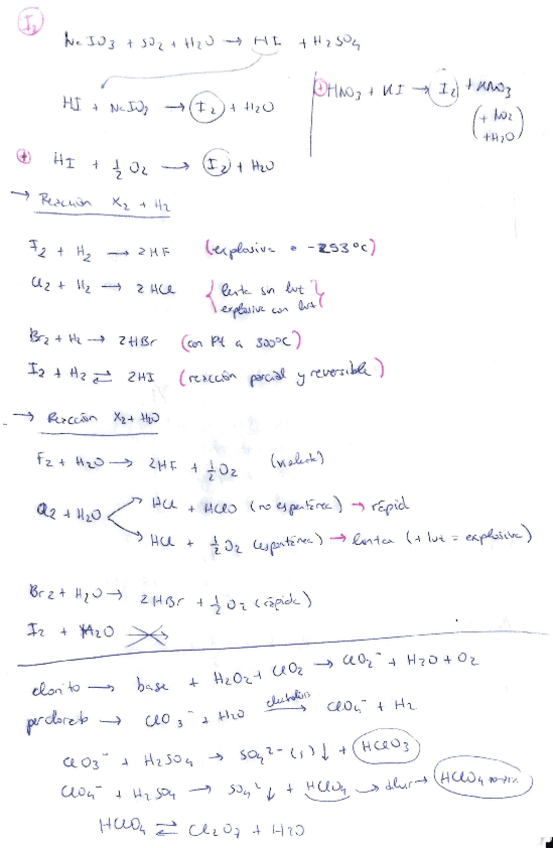 I₂
NaIO₃ + SO₂ + H₂O → HI + H₂SO₄
HI + NaIO₃ → I₂ + H₂O
+ HNO₃ + KI → I₂ + KNO₃
(+ NO₂
+ H₂O)
+ HI + ½ O₂ → I₂ + H₂O
→ Reacción X₂ + H₂
F₂ + H₂ → 2HF (explosiva a -253ºC)
Cl₂ + H₂ → 2HCl {lenta sin luz
explosiva con luz}
Br₂ + H₂ → 2HBr (con Pt a 300ºC)
I₂ + H₂ ⇄ 2HI (reacción parcial y reversible)
→ Reacción X₂ + H₂O
F₂ + H₂O → 2HF + ½ O₂ (violenta)
Cl₂ + H₂O
HCl + HClO (no espontánea) → rápida
HCl + ½ O₂ (espontánea) → lenta (+ luz = explosiva)
Br₂ + H₂O → 2HBr + ½ O₂ (rápida)
I₂ + H₂O
clorito → base + H₂O₂ + ClO₂ → ClO₂⁻ + H₂O + O₂
perclorato → ClO₃⁻ + H₂O → ClO₄⁻ + H₂
ClO₃⁻ + H₂SO₄ → SO₄²⁻ (s)↓ + HClO₃
ClO₄⁻ + H₂SO₄ → SO₄²⁻↓ + HClO₄ → → HClO₄
HClO₄ ⇄ Cl₂O₇ + H₂O